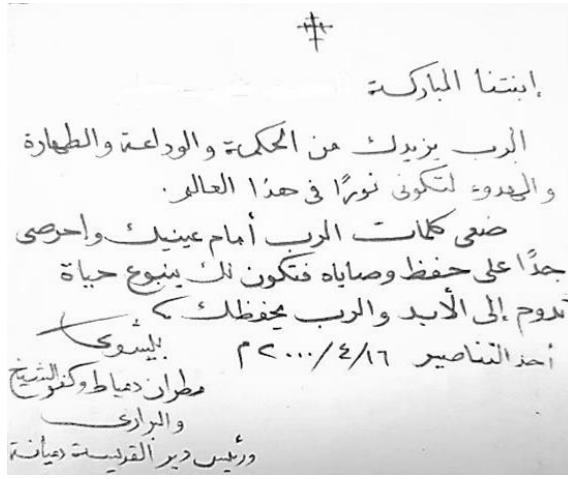 إبنتنا المباركة
الرب يزيدك من الحكمة والوداعة والطهارة
والهدوء لتكونى نورًا فى هذا العالم.
ضعى كلمات الرب أمام عينيك وإحرصى
جدًا على حفظ وصاياه فتكون لك ينبوع حياة
تدوم إلى الأبد والرب يحفظك
بيشوى
أحد التناصير ١٦/٤/٢٠٠٠م
مطران دمياط وكفر الشيخ
والبرارى
ورئيس دير القديسة دميانة